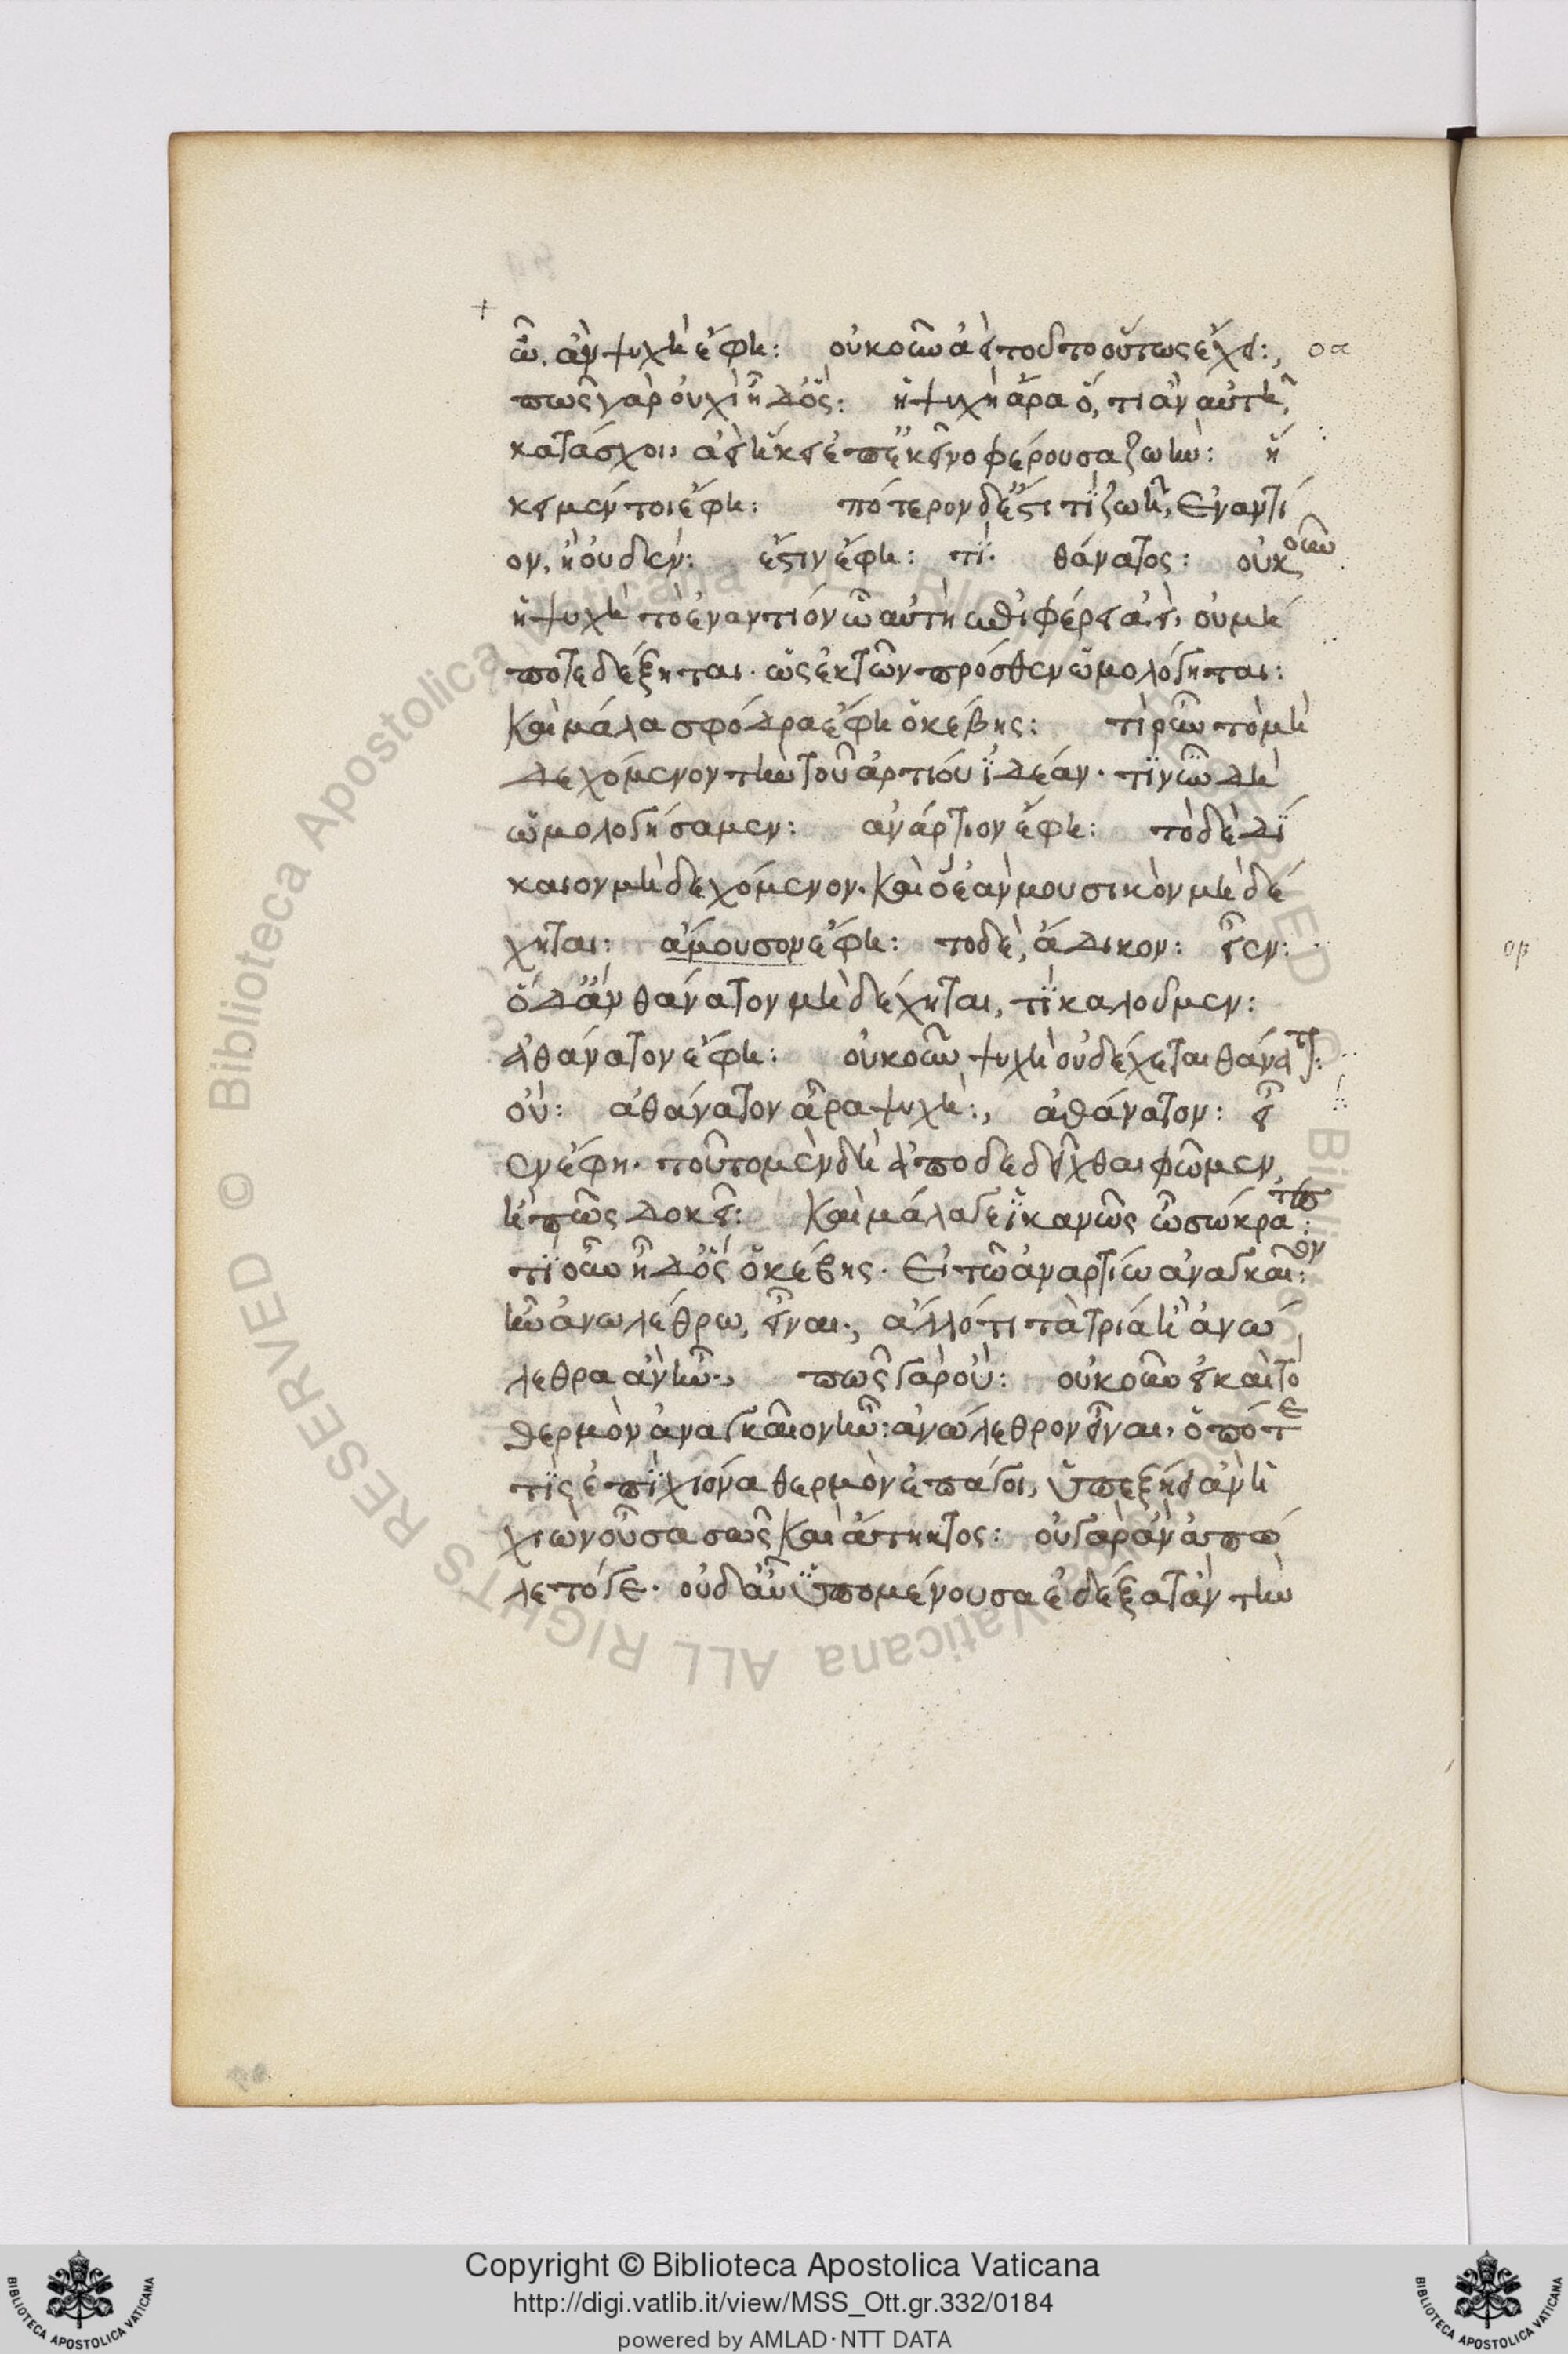 ᾧ ἂν ψυχὴ ἔφη: οὐκοῦν ἀεὶ τοῦτο οὕτως ἔχει:, οα
πῶς γὰρ οὐχὶ ἦ δ' ὅς: ἡ ψυχὴ ἄρα ὅ, τι ἂν αὐτὴ
κατάσχοι, ἀεὶ ἥκει ἐπ' ἐκεῖνο φέρουσα ζωήν: ἥ
κει μέν τοι ἔφη: πότερον δ' ἔστι τὶ ζωῆ, ἐναντί
ον, ἢ οὐδέν: ἔστιν ἔφη: τί. θάνατος: οὐκοῦν
ἡ ψυχὴ τὸ ἐναντίον ᾧ αὐτὴ ἐπιφέρει ἀεὶ, οὐ μή
ποτε δέξηται. ὡς ἐκ τῶν πρόσθεν ὡμολόγηται:
Καὶ μάλα σφόδρα ἔφη ὁ κέβης: τί οὖν τὸ μὴ
δεχόμενον τὴν τοῦ ἀρτίου ἰδέαν. τί νῦν δὴ
ὠμολογήσαμεν: ἀνάρτιον ἔφη: τὸ δὲ δί
καιον μὴ δεχόμενον. Καὶ ὃ ἐὰν μουσικὸν μὴ δέ
χηται: ἄμουσον ἔφη: τὸ δὲ, ἄδικον: εἶεν:
ὃ δ' ἂν θάνατον μὴ δέχηται, τί καλοῦμεν:
ἀθάνατον ἔφη: οὐκοῦν ψυχὴ οὐ δέχεται θάνατον:
οὐ: ἀθάνατον ἄρα ψυχή:, ἀθάνατον: εἶ
εν ἔφη. τοῦτο μὲν δὴ ἀποδεδεῖχθαι φῶμεν,
ἢ πῶς δοκεῖ: Καὶ μάλα γε ἱκανῶς ὦ σώκρατες:
τί οὖν ἦ δ' ὃς ὁ κέβης. Εἰ τῶ ἀναρτίω ἀναγκαῖον
ἦν ἀνωλέθρω, εἶναι., ἄλλό τι τὰ τρία ἢ ἀνώ
λεθρα ἂν ἦν., πῶς γὰρ οὐ: οὐκοῦν εἰ καὶ τὸ
θερμὸν ἀναγκαῖον ἦν: ἀνώλεθρον εἶναι, ὁπότε
τὶς ἐπὶ χιόνα θερμὸν ἐπάγοι, ὑπεξήει ἂν ἡ
χιὼν οὖσα σῶς Καὶ ἄτηκτος: οὐ γὰρ ἂν ἀπώ
λετό γε. οὐδ' αὖ ὑπομένουσα ἐδέξατ' ἂν τὴν
οβ
Copyright © Biblioteca Apostolica Vaticana
http://digi.vatlib.it/view/MSS_Ott.gr.332/0184
powered by AMLAD·NTT DATA